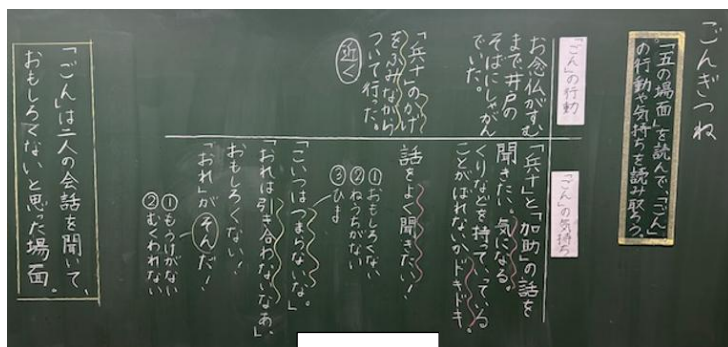 ごんぎつね
「五の場面」を読んで、「ごん」
の行動や気持ちを読み取ろう。
「ごん」の行動
お念仏がすむ
まで井戸の
そばにしゃがん
でいた。
「兵十のかげ
をふみながら
ついて行った。
近く
「ごん」の気持ち
「兵十」と「加助」の話を
聞きたい。気になる。
くりなどを持って、っている
ことがばれないかドキドキ。
話をよく聞きたい！
①おもしろくない
②ねうちがない
③ひま
「こいつはつまらないな。」
「おれは引き合わないなあ」
おもしろくない！
「おれ」がそんだ！
①もうけがない
②むくわれない
「ごん」は二人の会話を聞いて、
おもしろくないと思った場面。